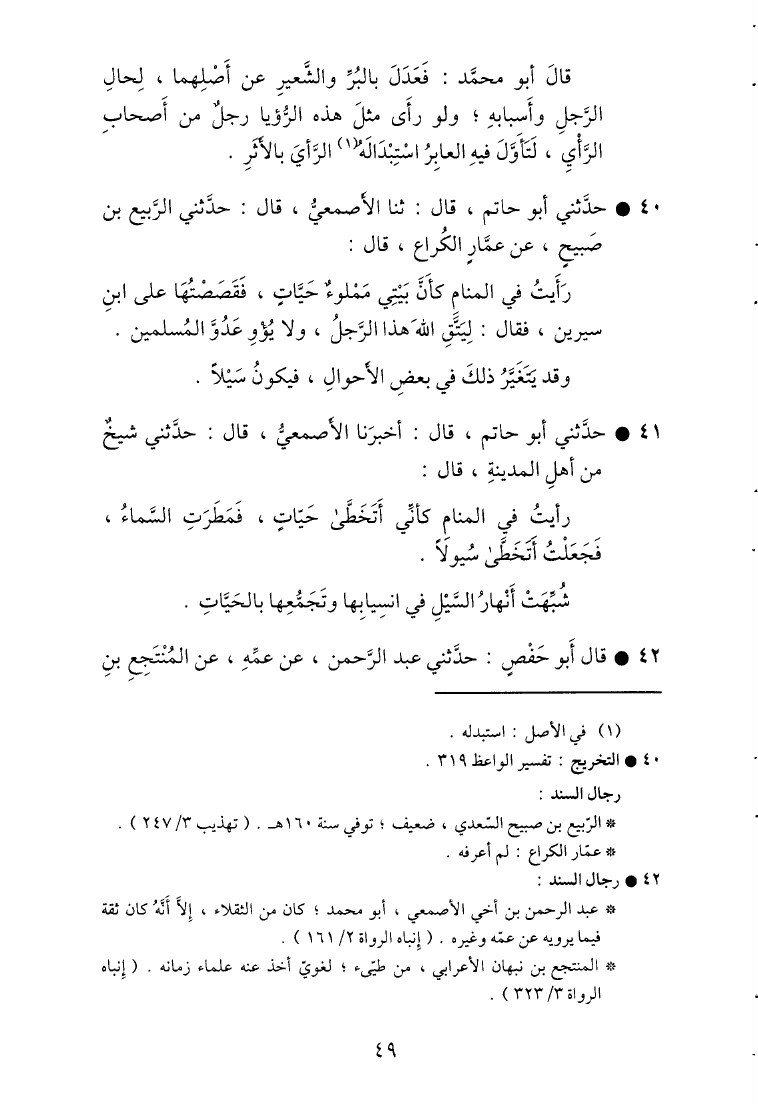 قالَ أبو محمَّد : فَعَدَلَ بالبُرِّ والشَّعيرِ عن أَصْلِهما ، لِحالِ
الرَّجلِ وأسبابهِ ؛ ولو رأى مثلَ هذه الرُّؤيا رجلٌ من أصحابِ
الرَّأْيِ ، لَتَأَوَّلَ فيهِ العابِرُ اسْتِبْدَالَهُ(١) الرَّأيَ بالأَثَرِ .
٤٠ ● حدَّثني أبو حاتم ، قال : ثنا الأصمعيُّ ، قال : حدَّثني الرَّبيع بن
صَبيحٍ ، عن عمَّارٍ الكُراع ، قال :
رَأيتُ في المنامِ كأنَّ بَيْتِي مَمْلوءٌ حَيَّاتٍ ، فَقَصَصْتُهَا على ابنِ
سيرين ، فقال : لِيَتَّقِ اللهَ هذا الرَّجلُ ، ولا يُؤْوِ عَدُوَّ المُسلمين .
وقد يَتَغَيَّرُ ذلكَ في بعضِ الأحوالِ ، فيكونُ سَيْلاً .
٤١ ● حدَّثني أبو حاتم ، قال : أخبرَنا الأصمعيُّ ، قال : حدَّثني شيخٌ
من أهلِ المدينةِ ، قال :
رأيتُ في المنامِ كأنِّي أَتَخَطَّىٰ حَيّاتٍ ، فَمَطَرَتِ السَّماءُ ،
فَجَعَلْتُ أَتَخَطَّىٰ سُيولَاً .
شُبِّهَتْ أَنْهارُ السَّيْلِ في انسِيابِها وتَجَمُّعِها بالحَيَّاتِ .
٤٢ ● قال أبو حَفْصٍ : حدَّثني عبد الرَّحمن ، عن عمِّهِ ، عن المُنْتَجِعِ بنِ
(١) في الأصل : استبدله .
٤٠ ● التخريج : تفسير الواعظ ٣١٩ .
رجال السند :
* الرّبيع بن صبيح السّعدي ، ضعيف ؛ توفي سنة ١٦٠هـ . ( تهذيب ٣/ ٢٤٧ ) .
* عمّار الكراع : لم أعرفه .
٤٢ ● رجال السند :
* عبد الرحمن بن أخي الأصمعي ، أبو محمد ؛ كان من الثقلاء ، إلاَّ أَنَّهُ كان ثقة
فيما يرويه عن عمّه وغيره . ( إنباه الرواة ٢/ ١٦١ ) .
* المنتجع بن نبهان الأعرابي ، من طيّىء ؛ لغويّ أخذ عنه علماء زمانه . ( إنباه
الرواة ٣/ ٣٢٣ ) .
٤٩